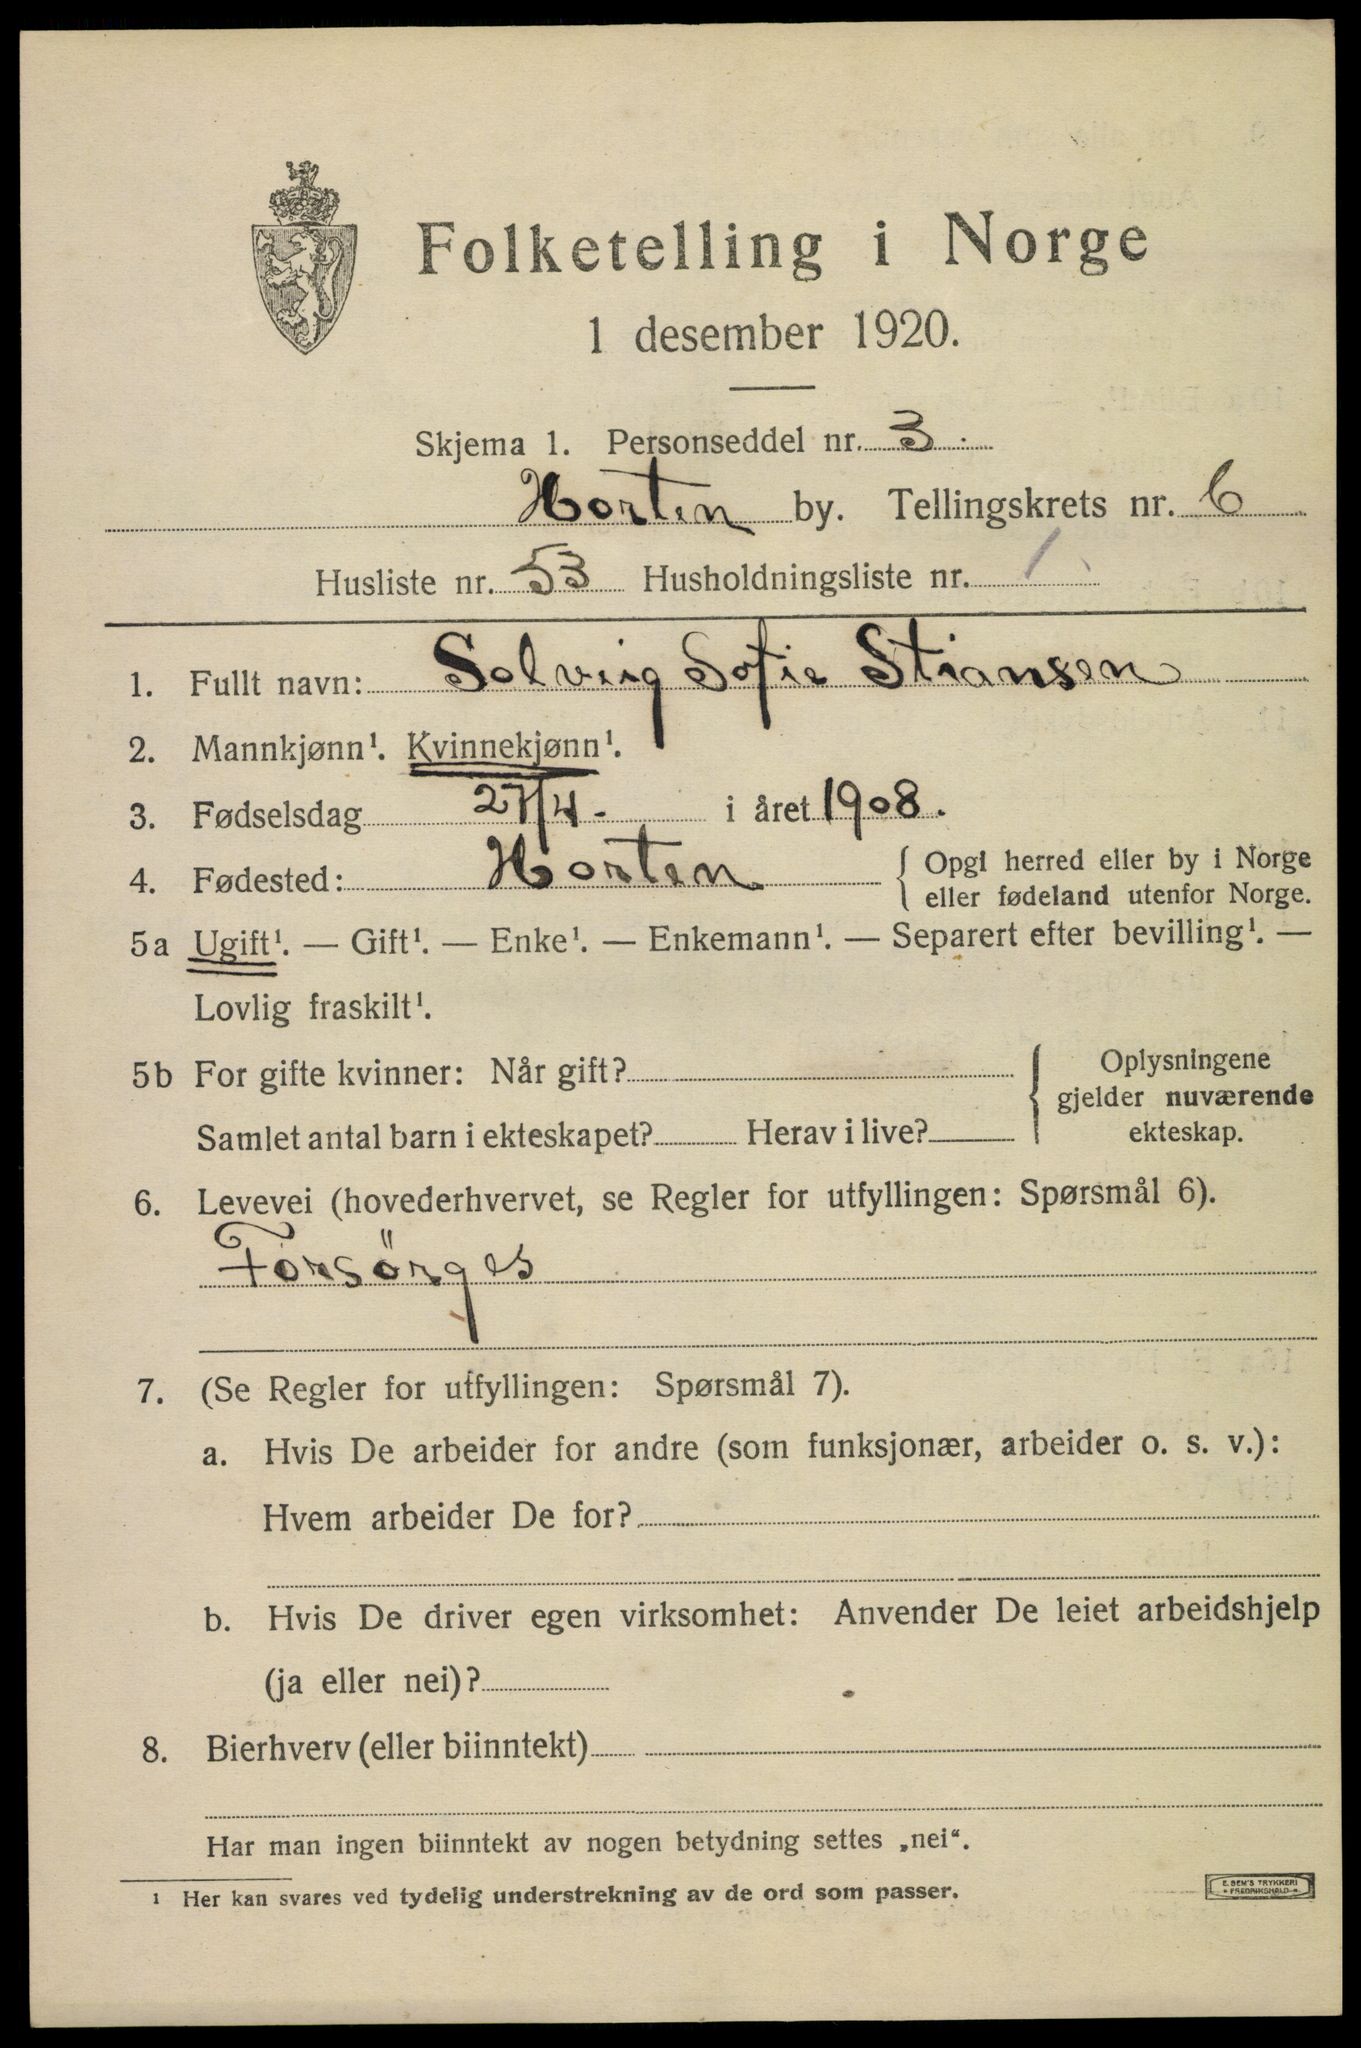 Folketelling i Norge
1 desember 1920.
Skjema 1. Personseddel nr. 3.
Horten by. Tellingskrets nr. 6
Husliste nr. 53 Husholdningsliste nr. 1.
1. Fullt navn: Solveig Sofie Stiansen
2. Mannkjønn¹. Kvinnekjønn¹.
3. Fødselsdag 27/4. i året 1908.
4. Fødested: Horten { Opgi herred eller by i Norge
eller fødeland utenfor Norge.
5a Ugift¹. — Gift¹. — Enke¹. — Enkemann¹. — Separert efter bevilling¹. —
Lovlig fraskilt¹.
5b For gifte kvinner: Når gift?
Samlet antal barn i ekteskapet? Herav i live?
Oplysningene
gjelder nuværende
ekteskap.
6. Levevei (hovederhvervet, se Regler for utfyllingen: Spørsmål 6).
Forsörges
7. (Se Regler for utfyllingen: Spørsmål 7).
a. Hvis De arbeider for andre (som funksjonær, arbeider o. s. v.):
Hvem arbeider De for?
b. Hvis De driver egen virksomhet: Anvender De leiet arbeidshjelp
(ja eller nei)?
8. Bierhverv (eller biinntekt)
Har man ingen biinntekt av nogen betydning settes „nei“.
¹ Her kan svares ved tydelig understrekning av de ord som passer.
E. SEM'S TRYKKERI
FREDRIKSHALD